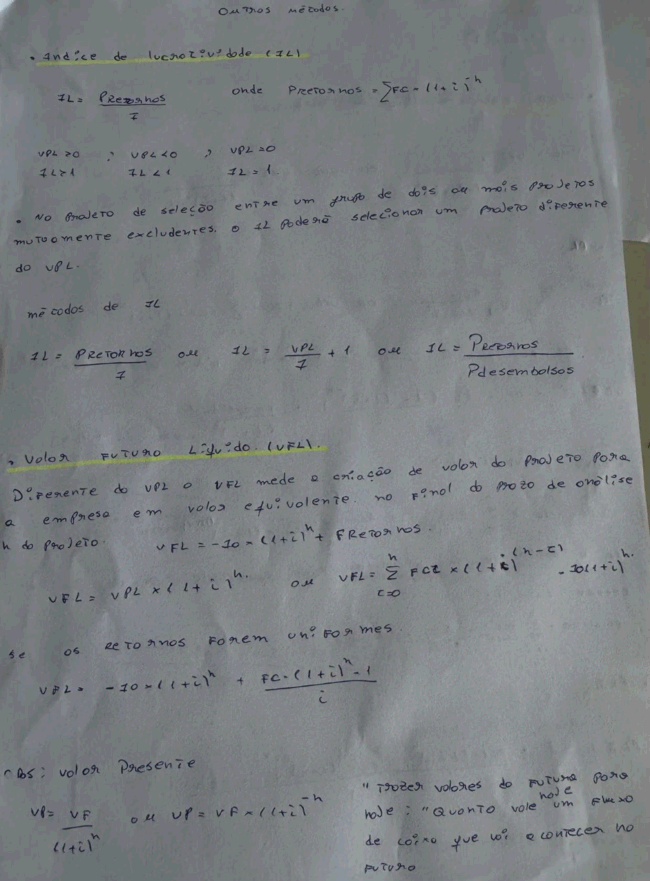 Outros métodos.
• Indice de lucratividade (IL)
IL = Pretornos / I onde Pretornos = ∑FC × (1+i)^n
VPL > 0 ; VPL < 0 ; VPL = 0
IL > 1 IL < 1 IL = 1
• No projeto de seleção entre um grupo de dois ou mais projetos
mutuamente excludentes, o IL poderá selecionar um projeto diferente
do VPL.
métodos de IL
IL = Pretornos / I ou IL = VPL / I + 1 ou IL = Pretornos / Pdesembolsos
• Valor Futuro Líquido. (VFL).
Diferente do VPL o VFL mede a criação de valor do projeto para
a empresa em valor equivalente no final do prazo de análise
n do projeto. VFL = -I0 × (1+i)^n + FRetornos.
VFL = VPL × (1+i)^n. ou VFL = ∑ n t=0 FCt × (1+i)^(n-t) - I0(1+i)^n.
se os retornos forem uniformes.
VFL = -I0 × (1+i)^n + FC·(1+i)^n - 1 / i
OBS: valor Presente
VP = VF / (1+i)^n ou VP = VF × (1+i)^-n
"Trazer valores do futuro para
hoje: "Quanto vale hoje um fluxo
de caixa que vai acontecer no
futuro